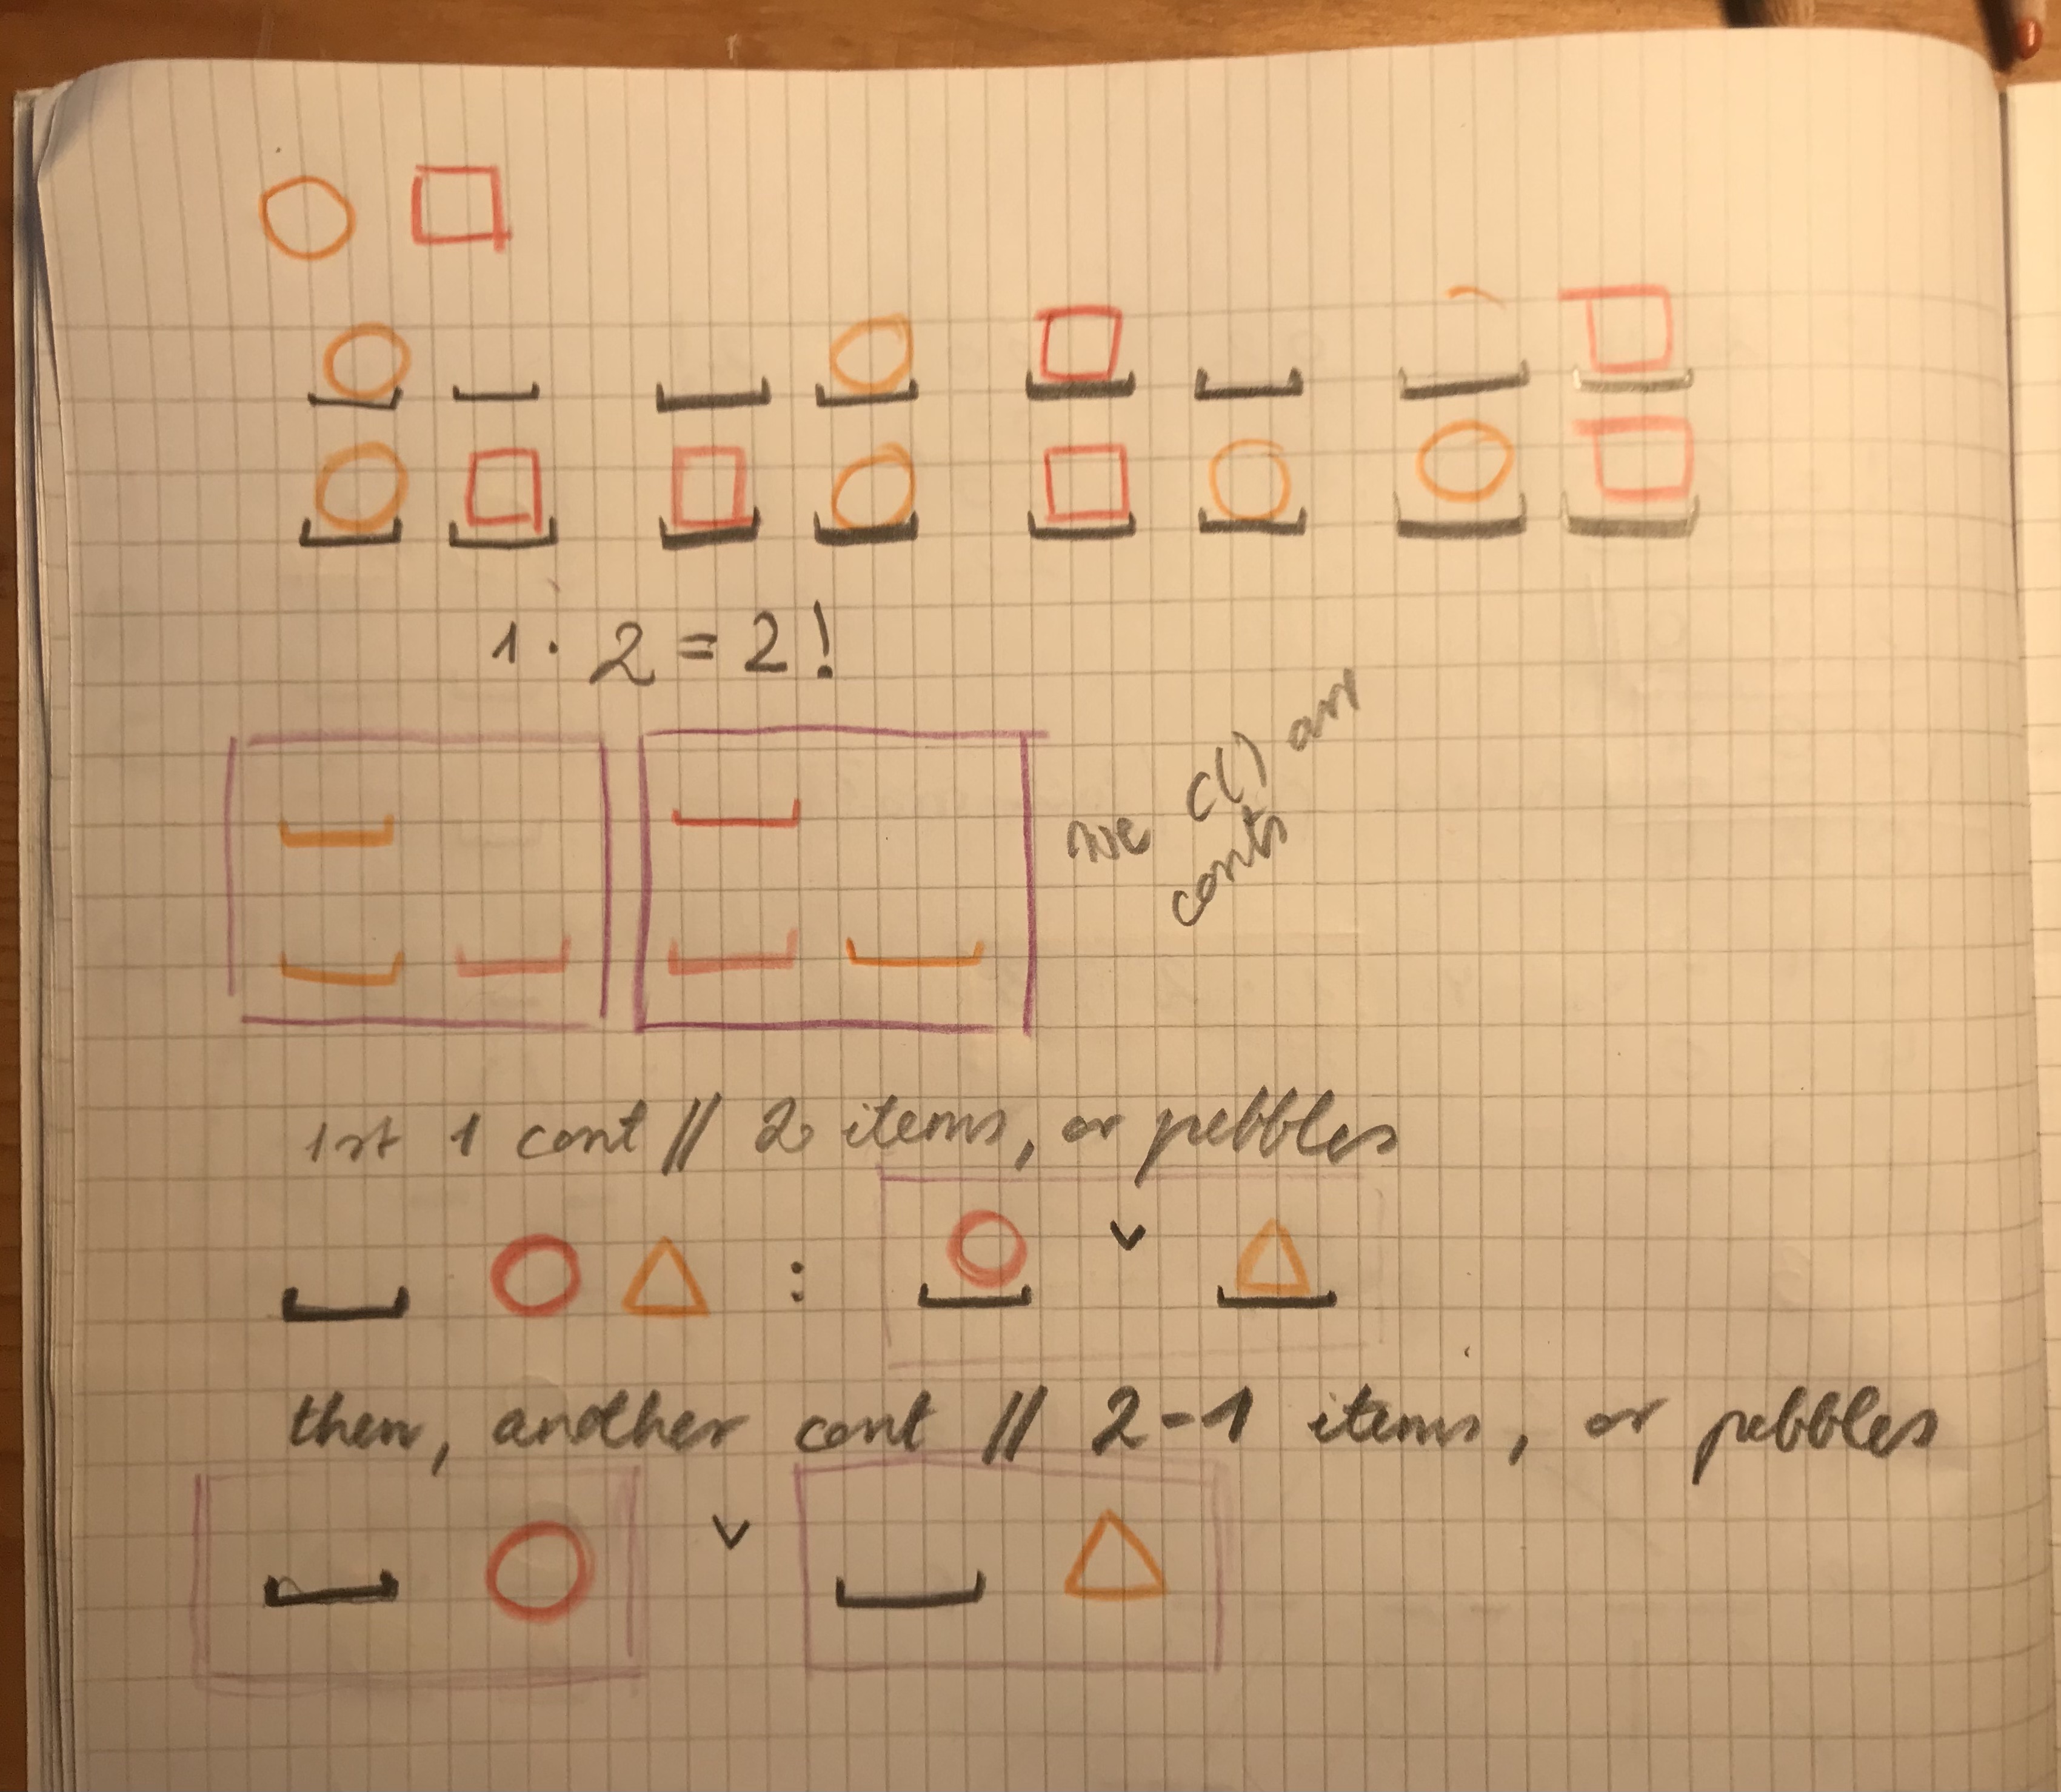 1 · 2 = 2!
C()
conts
1st 1 cont // 2 items, or pebbles
: ∨
then, another cont // 2-1 items, or pebbles
∨